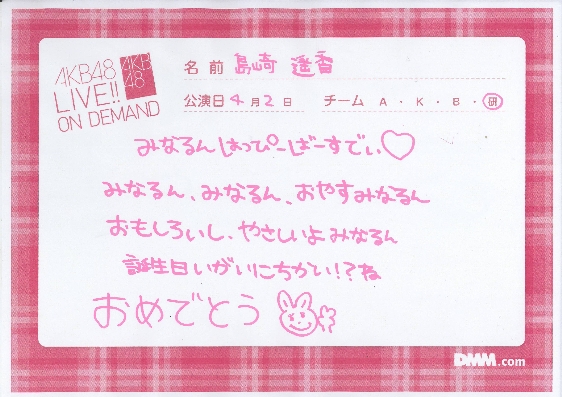 AKB48
LIVE!!
ON DEMAND
AKB
48
名前 島崎 遥香
公演日 4月2日 チーム A・K・B・研
みなるんはっぴーばーすでぃ♡
みなるん、みなるん、おやすみなるん
おもしろいし、やさしいよみなるん
誕生日いがいにちかい!?ね
おめでとう
DMM.com